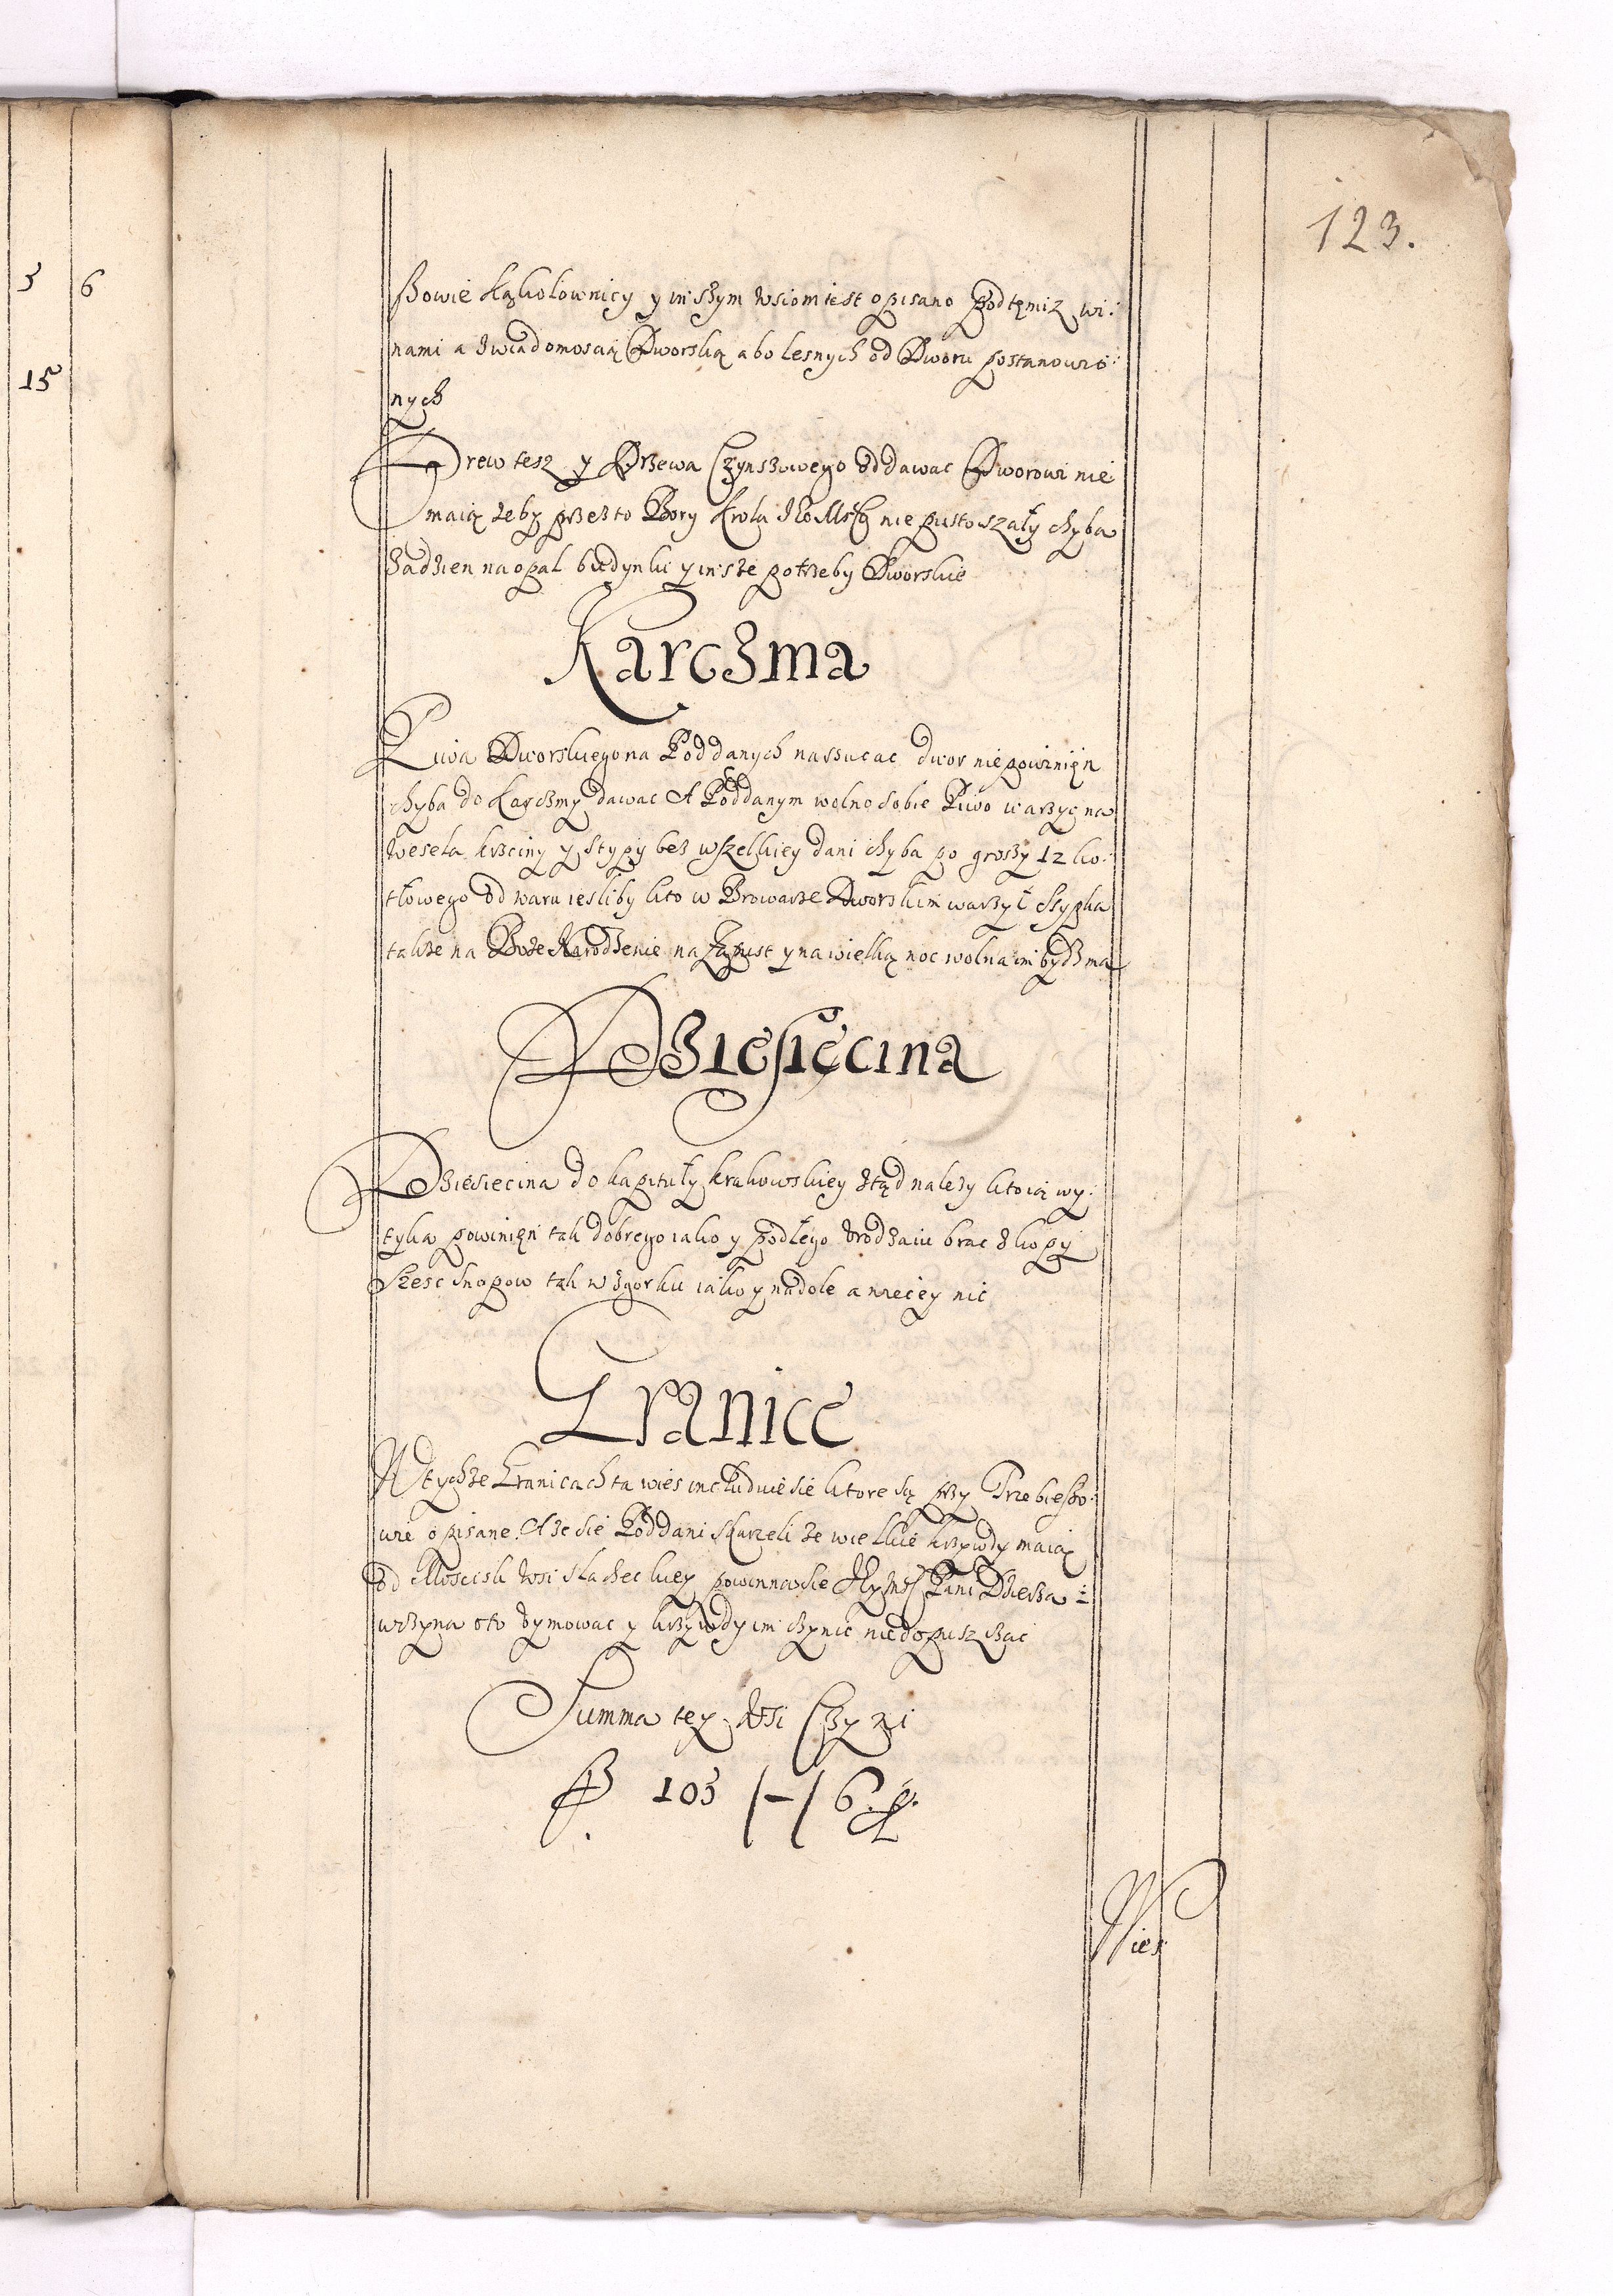 123.
3 6
15
ssowie Kąkolownicy y inszym wsiom iest opisano pod tęmiz wi:
nami a zwiadomoscią Dworską abo lesnych od Dworu postanowio:
nych
Drew tesz y Drzewa Czynszowego oddawac Dworowi nie
maią zeby przezto Bory Krola Jo Mści nie pustoszały chyba
na opal budynki y insze potrzeby Dworskie
Karczma
Piwa Dworskiego na Poddanych nassucac dwor niepowinięn
chyba do Karczmy dawac A Poddanym wolno sobie Piwo warzyc na
Wesela krzciny y Stypy bez wszelkiey dani chyba po groszy 12 ko:
tłowego od waru iesliby kto w Browarze Dworskim warzył Sypka
takze na Boze Narodzenie na Zapust y na wielką noc wolna im bydz ma
Dziesięcina
Dziesiecina do kapituły krakowskiey ztąd nalezy ktorą wy:
tyka powinięn tak dobrego iako y podłego urodzaiu brac z kopy
Szesc Snopow tak w Zgorku iako y nadole a wiecey nic
Granice
W tychze Granicach ta wies includuie sie ktore są przy Trzebiesso:
wie opisane. A ze sie Poddani skarzeli ze wielkie krzywdy maią
od Mościsk Wsi slacheckiey powinna sie Pani Dzierza:
wczyna oto zymowac y krzywdy im czynic niedopuszczac
Summa tey Wsi Czyni
103 /-/ 6
Wies